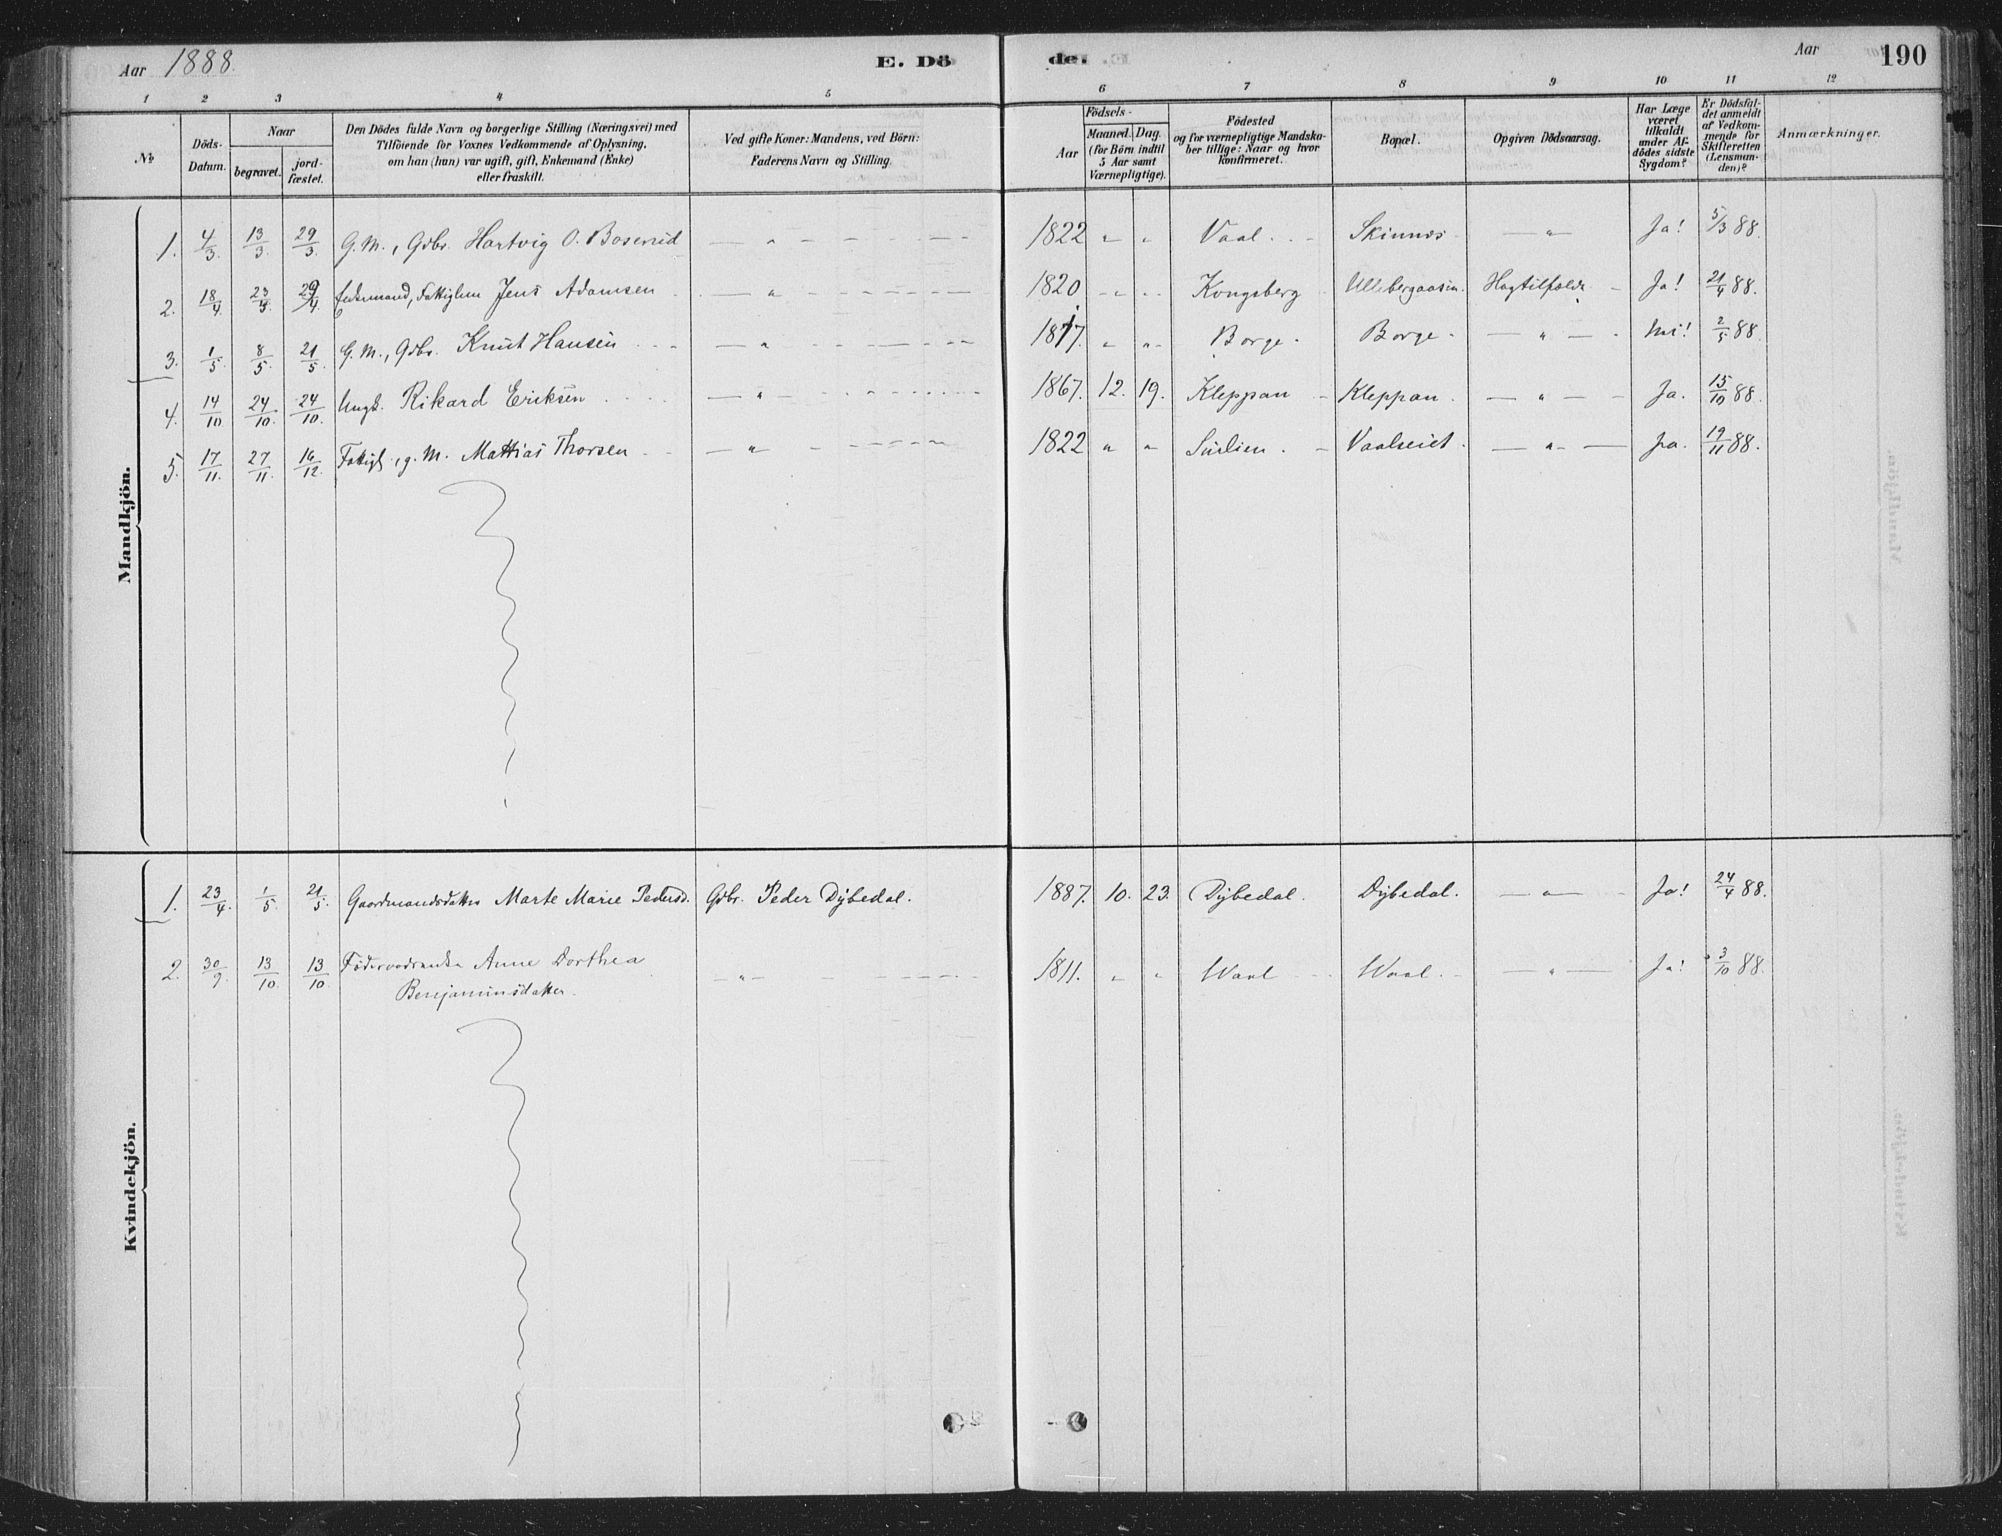 Aar 1888.
E. Döde.
Aar
190
1 2 3 4 5 6 7 8 9 10 11 12
№
Döds-Datum.
Naar
begravet.
jord-fæstet.
Den Dödes fulde Navn og borgerlige Stilling (Næringsvei) med
Tilföiende for Voxnes Vedkommende af Oplysning,
om han (hun) var ugift, gift, Enkemand (Enke)
eller fraskilt.
Ved gifte Koner: Mandens, ved Börn:
Faderens Navn og Stilling.
Födsels-
Aar
Maaned. Dag.
(for Börn indtil
5 Aar samt
Værnepligtige).
Födested
og for værnepligtige Mandska-
ber tillige: Naar og hvor
konfirmeret.
Bopæl.
Opgiven Dödsaarsag.
Har Læge
været
tilkaldt
under Af-
dödes sidste
Sygdom?
Er Dödsfal-
det anmeldt
af Vedkom-
mende for
Skifteretten
(Lensman-
den)?
Anmærkninger.
Mandkjön.
1. 4/3 13/3 29/3 G. M., Gdbr. Hartvig O. Boserud — " — 1822 " " Vaal. Skinnes — " — Ja! 5/3 88.
2. 18/4 23/4 29/4 Jens Adamsen — " — 1820 " " Kongsberg Ullebergaasen Hagtilfælde Ja! 21/4 88.
3. 1/5 8/5 21/5 G. M., Gdbr. Knut Hansen — " — 1817. " " Borge. Borge. — " — Nei! 2/5 88.
4. 14/10 24/10 24/10 Ungk. Rikard Eriksen — " — 1867. 12. 19. Kleppan Kleppan. — " — Ja. 15/10 88.
5. 17/11. 27/11. 16/12. Fattigl., g. M. Mattias Thorsen — " — 1822 " " Vaalseiet. — " — Ja. 19/11 88.
Kvindekjön.
1. 23/4. 1/5. 21/5. Gaardmandsdatter Marte Marie Pedersd. Gdbr. Peder Dybedal. 1887. 10. 23. Dybedal. Dybedal. — " — Ja! 24/4 88.
2. 30/9. 13/10 13/10 Föderaadsenke Anne Dorthea — " — 1811. " " Waal Waal. — " — Ja! 3/10 88.
Benjaminsdatter.